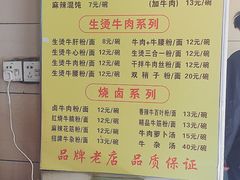 麻辣混饨 7元/碗 (加牛肉) 13元/碗
生烫牛肉系列
生烫牛肝粉/面 8元/碗 牛肉+牛腰粉/面 12元/碗
生烫牛心粉/面 12元/碗 生烫三合一粉/面 12元/碗
生烫牛腰粉/面 12元/碗 干拌牛肉丝粉/面 12元/碗
生烫牛肚粉/面 12元/碗 双梢子粉/面 20元/碗
烧卤系列
卤牛肉粉/面 12元/碗 香辣牛百叶粉/面 13元/碗
红烧牛腩粉/面 12元/碗 精品牛筋粉/面 13元/碗
麻辣花筋粉/面 12元/碗 牛肉萝卜汤 15元/碗
招牌牛杂粉/面 13元/碗 牛杂汤 40元/碗
品牌老店 品质保证